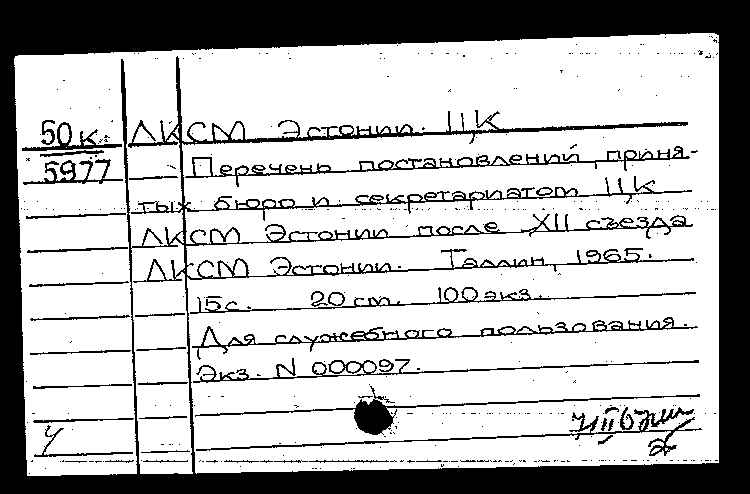 50к ЛКСМ Эстонии. ЦК
5977 Перечень постановлений, приня-
тых бюро и секретариатом ЦК
ЛКСМ Эстонии после XII съезда
ЛКСМ Эстонии. Таллин, 1965.
15с. 20 см. 100 экз.
Для служебного пользования.
Экз. N 000097.
У